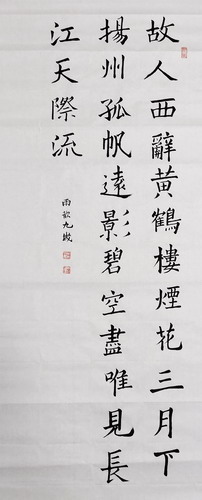 故人西辭黃鶴樓煙花三月下
揚州孤帆遠影碧空盡唯見長
江天際流